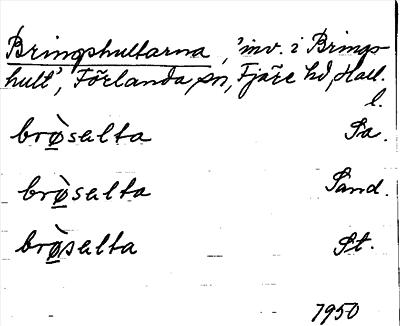 Bringshultarna, 'inv. i Brings-
hult', Förlanda sn, Fjäre hd, Hall.
l.
brø̀salta Sa.
brø̀salta Sand.
brø̀salta St.
1950